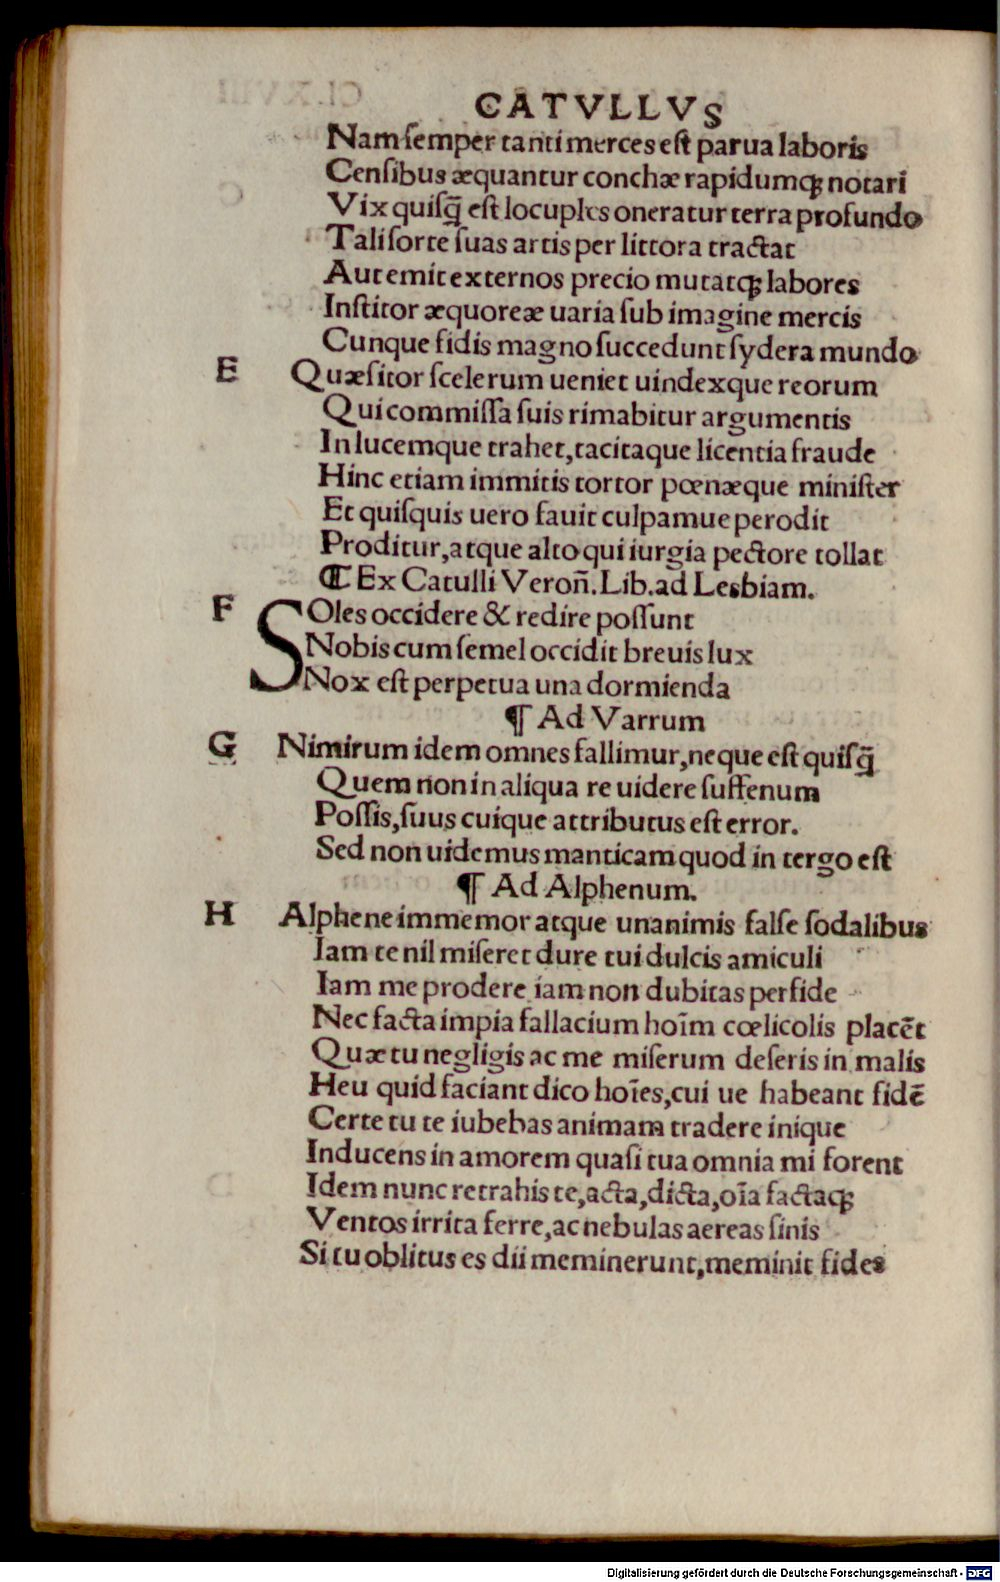 CATVLLVS
Nam ſemper tanti merces eſt parua laboris
Cenſibus æquantur conchæ rapidumqꝫ notari
Vix quiſq̃ eſt locuples oneratur terra profundo
Tali ſorte ſuas artis per littora tractat
Aut emit externos precio mutatqꝫ labores
Inſtitor æquoreæ uaria ſub imagine mercis
Cunque fidis magno ſuccedunt ſydera mundo
E Quæſitor ſcelerum ueniet uindexque reorum
Qui commiſſa ſuis rimabitur argumentis
In lucemque trahet, tacitaque licentia fraude
Hinc etiam immitis tortor pœnæque miniſter
Et quiſquis uero fauit culpamue perodit
Proditur, atque alto qui iurgia pectore tollat
¶ Ex Catulli Veroñ. Lib. ad Lesbiam.
F SOles occidere & redire poſſunt
Nobis cum ſemel occidit breuis lux
Nox eſt perpetua una dormienda
¶ Ad Varrum
G Nimirum idem omnes fallimur, neque eſt quiſq̃
Quem non in aliqua re uidere ſuffenum
Poſſis, ſuus cuique attributus eſt error.
Sed non uidemus manticam quod in tergo eſt
¶ Ad Alphenum.
H Alphene immemor atque unanimis falſe ſodalibus
Iam te nil miſeret dure tui dulcis amiculi
Iam me prodere iam non dubitas perfide
Nec facta impia fallacium hoīm cœlicolis placēt
Quæ tu negligis ac me miſerum deſeris in malis
Heu quid faciant dico hoīes, cui ue habeant fidē
Certe tu te iubebas animam tradere inique
Inducens in amorem quaſi tua omnia mi forent
Idem nunc retrahis te, acta, dicta, oīa factaqꝫ
Ventos irrita ferre, ac nebulas aereas ſinis
Si tu oblitus es dii meminerunt, meminit fides
Digitalisierung gefördert durch die Deutsche Forschungsgemeinschaft - DFG